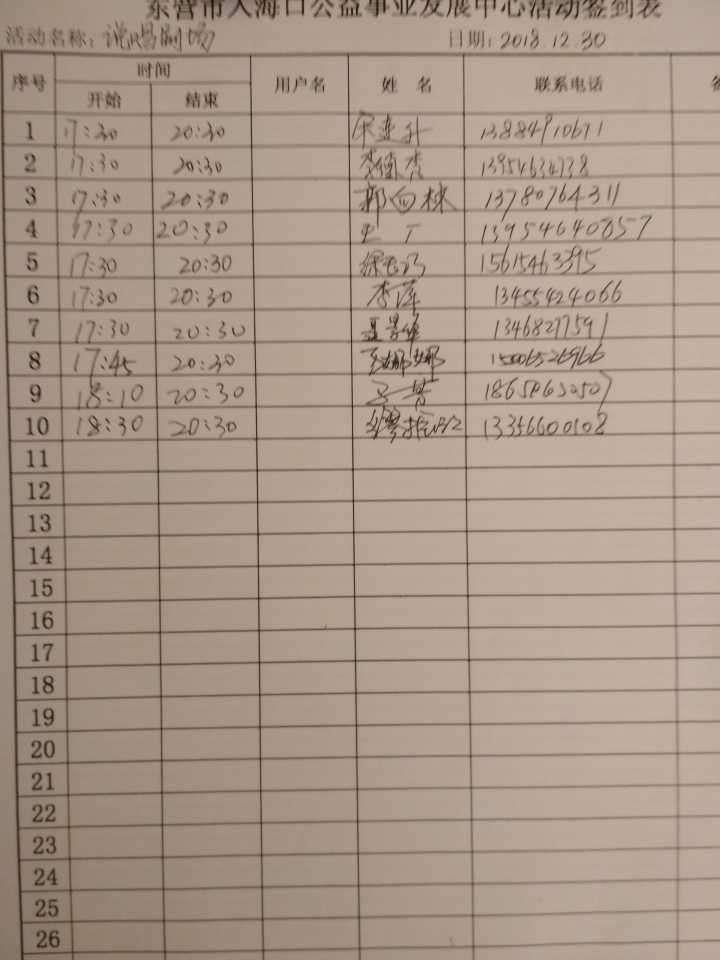 东营市入海口公益事业发展中心活动签到表
活动名称：说唱剧场 日期：2018.12.30
序号 时间 用户名 姓名 联系电话
开始 结束
1 17:30 20:30 13884910671
2 17:30 20:30 李德杏 13954634738
3 17:30 20:30 郭向林 13780764311
4 17:30 20:30 13954640857
5 17:30 20:30 15615463395
6 17:30 20:30 李萍 13455424066
7 17:30 20:30 13468277591
8 17:45 20:30 王娜娜 15006526966
9 18:10 20:30
10 18:30 20:30 13356600108
11
12
13
14
15
16
17
18
19
20
21
22
23
24
25
26